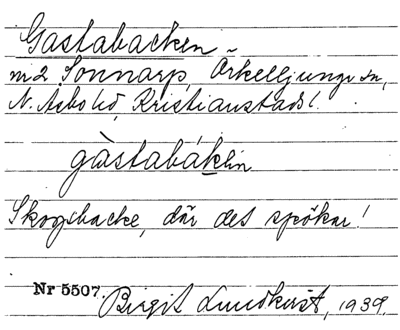 Gastabacken
nr 2 Sonnarp, Örkelljunga sn,
N. Åsbo hd, Kristianstads l.
gàstabákən
Skogsbacke, där det spökar!
Nr 5507. Birgit Lundkvist, 1939.